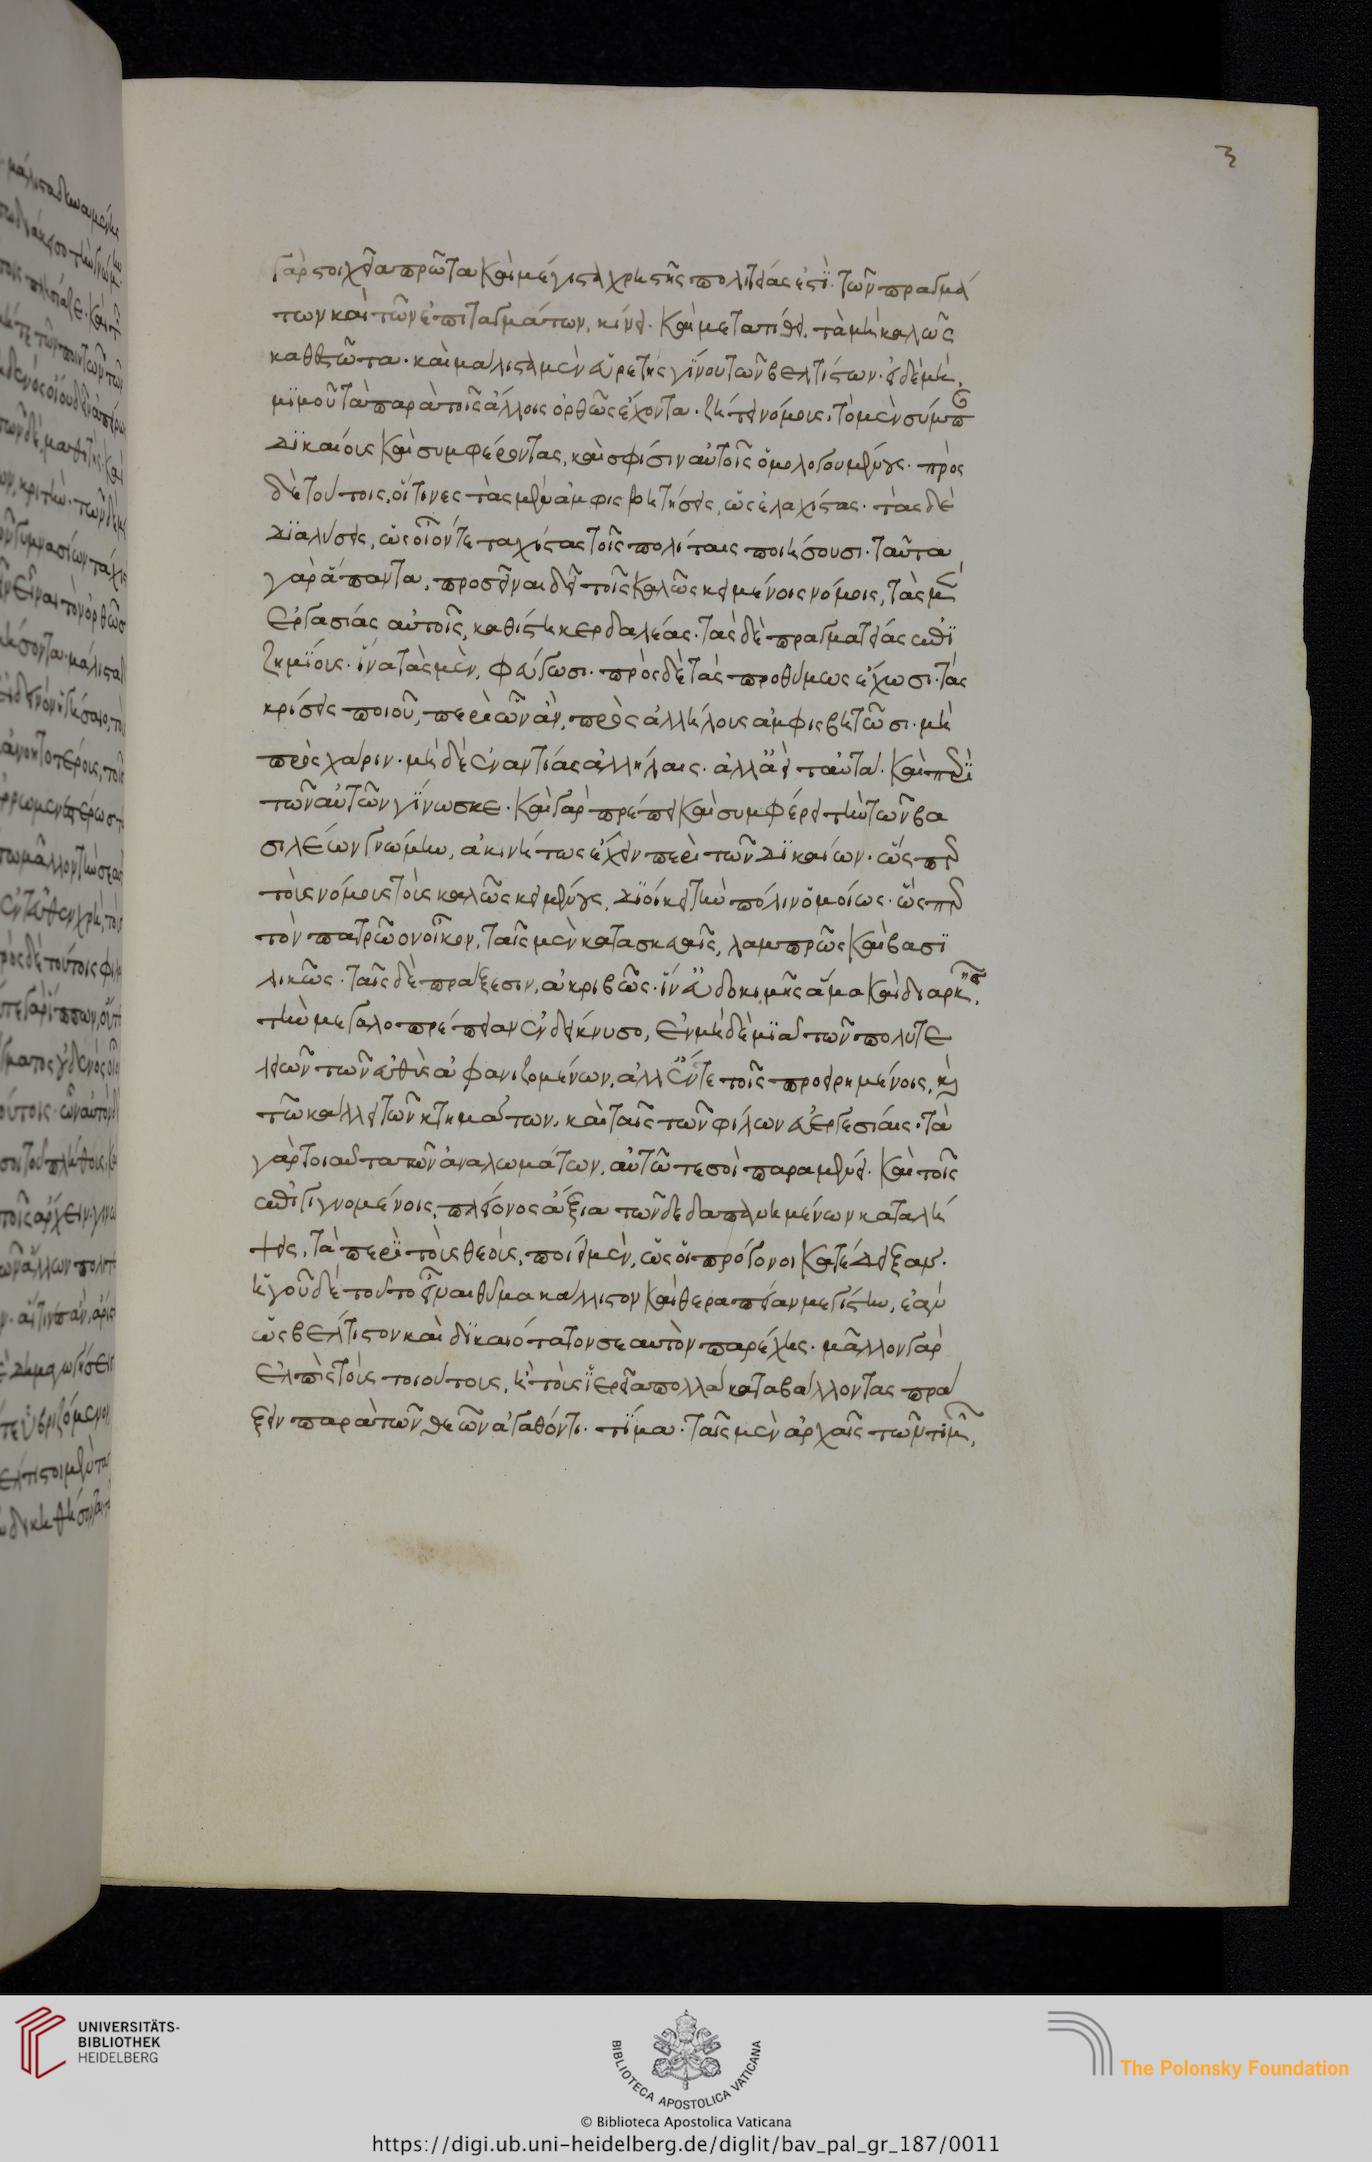 γὰρ στοιχεῖα πρῶτα καὶ μέγιστα χρηστῆς πολιτείας ἐστί. τῶν πραγμά
των καὶ τῶν ἐπιταγμάτων, κίνει. καὶ μετατίθει. τὰ μὴ καλῶς
καθεστῶτα. καὶ μάλιστα μὲν εὑρετὴς γίνου τῶν βελτίστων. εἰ δὲ μὴ,
μιμοῦ τὰ παρὰ τοῖς ἄλλοις ὀρθῶς ἔχοντα. ζήτει νόμοις, τὸ μὲν σύμπαν
δικαίοις καὶ συμφέροντας, καὶ σφίσιν αὐτοῖς ὁμολογουμένους. πρὸς
δὲ τούτοις, οἵτινες τὰς μὲν ἀμφισβητήσεις, ὡς ἐλαχίστας. τὰς δὲ
διαλύσεις, ὡς οἷόν τε ταχίστας τοῖς πολίταις ποιήσουσι. ταῦτα
γὰρ ἅπαντα, προσεῖναι δεῖ τοῖς καλῶς κειμένοις νόμοις, τὰς μὲν
ἐργασίας αὐτοῖς, καθίστη κερδαλέας. τὰς δὲ πραγματείας ἐπι
ζημίοις. ἵνα τὰς μὲν, φεύγωσι. πρὸς δὲ τὰς προθύμως ἔχωσι. τὰς
κρίσεις ποιοῦ, περὶ ὧν ἂν, πρὸς ἀλλήλους ἀμφισβητῶσι. μὴ
πρὸς χάριν. μὴ δὲ ἐναντίας ἀλλήλαις. ἀλλ' ἀεὶ ταὐτά. καὶ περὶ
τῶν αὐτῶν γίνωσκε. καὶ γὰρ πρέπει καὶ συμφέρει τὴν τῶν βα
σιλέων γνώμην, ἀκινήτως ἔχειν περὶ τῶν δικαίων. ὥσπερ
τοὺς νόμους τοὺς καλῶς κειμένους, διοίκει τὴν πόλιν ὁμοίως. ὥσπερ
τὸν πατρῶον οἶκον, ταῖς μὲν κατασκευαῖς, λαμπρῶς καὶ βασι
λικῶς. ταῖς δὲ πράξεσιν, ἀκριβῶς. ἵν' εὐδοκιμῇς ἅμα καὶ διαρκῇς,
τὴν μεγαλοπρέπειαν ἐνδείκνυσο, ἐν μὴ δὲ μιᾷ τῶν πολυτε
λειῶν τῶν εὐθὺς ἀφανιζομένων, ἀλλ' ἔν τε τοῖς προειρημένοις, καὶ
τῶ κάλλει τῶν κτημάτων, καὶ ταῖς τῶν φίλων εὐεργεσίαις. τὰ
γὰρ τοιαῦτα τῶν ἀναλωμάτων, αὐτῶ τε σοὶ παραμένει. καὶ τοῖς
ἐπιγιγνομένοις, πλείονος ἄξια τῶν δεδαπανημένων καταλεί
ψεις, τὰ περὶ τοὺς θεούς, ποίει μὲν, ὡς οἱ πρόγονοι κατέδειξαν.
ἡγοῦ δὲ τοῦτο εἶναι θῦμα κάλλιστον καὶ θεραπείαν μεγίστην, ἐὰν
ὡς βέλτιστον καὶ δικαιότατον σεαυτὸν παρέχῃς. μᾶλλον γὰρ
ἐλπὶς τοὺς τοιούτους, ἢ τοὺς ἱερεῖα πολλὰ καταβάλλοντας πρά
ξειν παρὰ τῶν θεῶν ἀγαθόν τι. τίμα. ταῖς μὲν ἀρχαῖς τῶν τιμῶν,
3
UNIVERSITÄTS-
BIBLIOTHEK
HEIDELBERG
BIBLIOTECA APOSTOLICA VATICANA
The Polonsky Foundation
© Biblioteca Apostolica Vaticana
https://digi.ub.uni-heidelberg.de/diglit/bav_pal_gr_187/0011